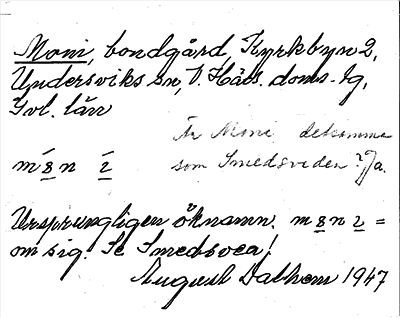 Moni, bondgård, Kyrkbyn 2,
Undersviks sn, V. Häls. doms. lg,
Gvl. län
Är Moni detsamma
som Smedsveden? Ja.
m s n i
Ursprungligen öknamn. m s n i =
om sig. Se Smedsvea!
August Dalhem 1947